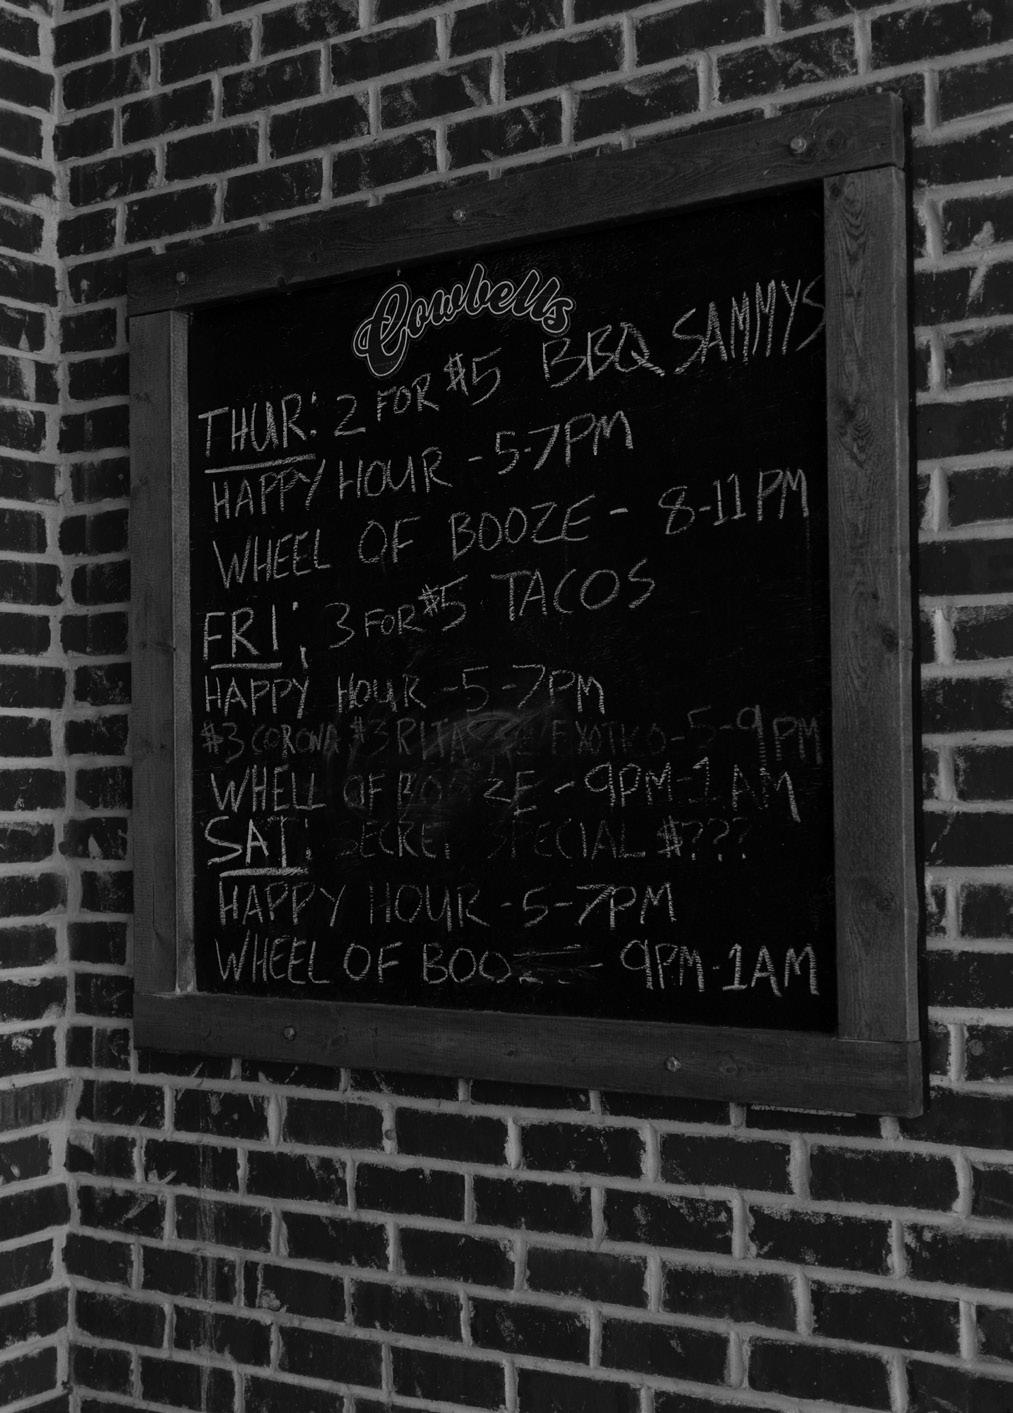 Cowbells
THUR: 2 FOR $5 BBQ SAMMYS
HAPPY HOUR - 5-7PM
WHEEL OF BOOZE - 8-11PM
FRI: 3 FOR $5 TACOS
HAPPY HOUR - 5-7PM
$3 CORONA $3 RITAS EXOTICO - 5-9PM
WHELL OF BOOZE - 9PM-1AM
SAT: SECRET SPECIAL $???
HAPPY HOUR - 5-7PM
WHEEL OF BOOZE - 9PM-1AM